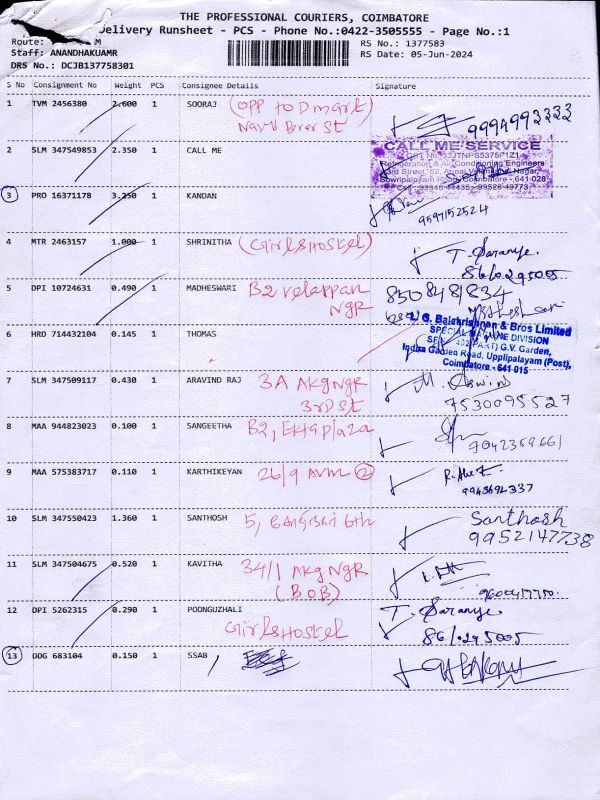 THE PROFESSIONAL COURIERS, COIMBATORE
Delivery Runsheet - PCS - Phone No.:0422-3505555 - Page No.:1
Route:
RS No.: 1377583
Staff: ANANDHAKUAMR
RS Date: 05-Jun-2024
DRS No.: DCJB137758301
S No Consignment No Weight PCS Consignee Details Signature
1 TVM 2456380 2.600 1 SOORAJ (OPP to Dmart)
9994993333
2 SLM 347549853 2.350 1 CALL ME
CALL ME SERVICE
Refrigeration & Air Conditioning Engineers
Sowripalayam Road, Coimbatore - 641 028
3 PRO 16371178 3.250 1 KANDAN
9597152524
4 MTR 2463157 1.000 1 SHRINITHA (Girls Hostel) T. Saranya.
5 DPI 10724631 0.490 1 MADHESWARI B2 velappan
NGR
L. G. Balakrishnan & Bros Limited
DIVISION
G.V. Garden,
Indira Garden Road, Upplipalayam (Post),
Coimbatore - 641 015
6 HRD 714432104 0.145 1 THOMAS
7 SLM 347509117 0.430 1 ARAVIND RAJ 3A AKG NGR
3rd St
M. Aswin
7530095527
8 MAA 944823023 0.100 1 SANGEETHA B2, Ekta plaza
7042359661
9 MAA 575383717 0.110 1 KARTHIKEYAN 26/9 AVM 2
10 SLM 347550423 1.360 1 SANTHOSH 5, 6th
Santhosh
9952147738
11 SLM 347504675 0.520 1 KAVITHA 34/1 AKG NGR
(BOB)
12 DPI 5262315 0.290 1 POONGUZHALI T. Saranya.
Girls Hostel
13 DDG 683104 0.150 1 SSAB